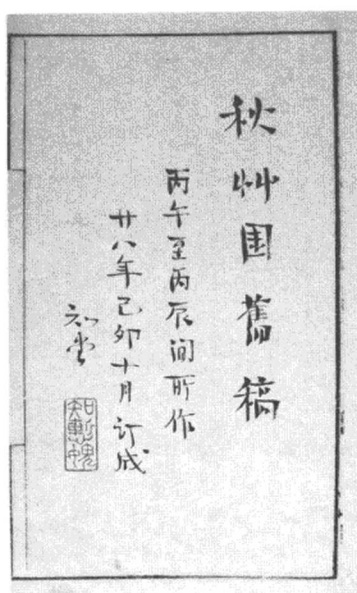 秋艸園舊稿
丙午至丙辰间所作
廿八年己卯十月订成
知堂
知慙愧